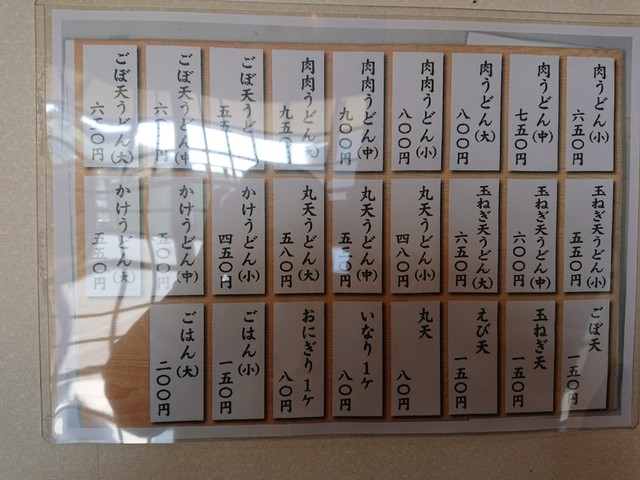 肉うどん(小) 六五〇円
肉うどん(中) 七五〇円
肉うどん(大) 八〇〇円
肉肉うどん(小) 八〇〇円
肉肉うどん(中) 九〇〇円
肉肉うどん 九五〇円
ごぼ天うどん
ごぼ天うどん(中)
ごぼ天うどん(大) 六五〇円
玉ねぎ天うどん(小) 五五〇円
玉ねぎ天うどん(中) 六〇〇円
玉ねぎ天うどん(大) 六五〇円
丸天うどん(小) 四八〇円
丸天うどん(中) 五三〇円
丸天うどん(大) 五八〇円
かけうどん(小) 四五〇円
かけうどん(中) 五〇〇円
かけうどん(大) 五五〇円
ごぼ天 一五〇円
玉ねぎ天 一五〇円
えび天 一五〇円
丸天 八〇円
いなり1ケ 八〇円
おにぎり1ケ 八〇円
ごはん(小) 一五〇円
ごはん(大) 二〇〇円